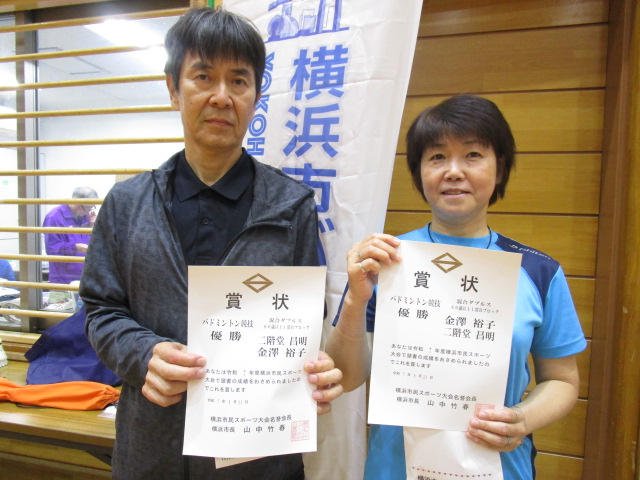 横浜市
YOKOH
賞状
バドミントン競技
混合ダブルス
優勝
二階堂 昌明
金澤 裕子
あなたは令和 7 年度横浜市民スポーツ
大会で頭書の成績をおさめられましたの
でこれを賞します
横浜市民スポーツ大会名誉会長
横浜市長 山中竹春
賞状
バドミントン競技
混合ダブルス
優勝
金澤 裕子
二階堂 昌明
あなたは令和 7 年度横浜市民スポーツ
大会で頭書の成績をおさめられましたの
でこれを賞します
横浜市民スポーツ大会名誉会長
横浜市長 山中竹春